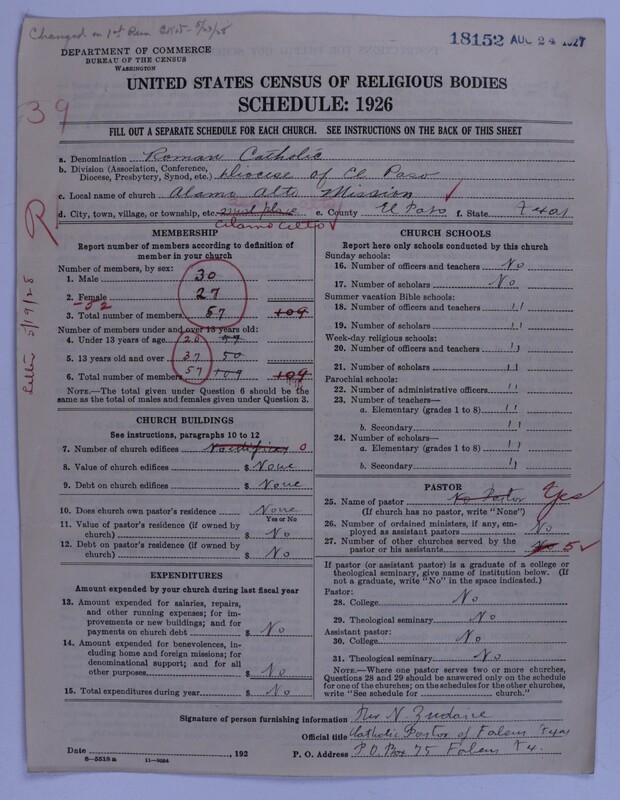 Changed on 1st Run 5/23/28
18152 AUG 24 1927
DEPARTMENT OF COMMERCE
BUREAU OF THE CENSUS
WASHINGTON
UNITED STATES CENSUS OF RELIGIOUS BODIES
SCHEDULE: 1926
39
FILL OUT A SEPARATE SCHEDULE FOR EACH CHURCH. SEE INSTRUCTIONS ON THE BACK OF THIS SHEET
a. Denomination Roman Catholic
b. Division (Association, Conference, Diocese, Presbytery, Synod, etc.) Diocese of El Paso
c. Local name of church Alamo Alto Mission
d. City, town, village, or township, etc. small place e. County El Paso f. State Texas
Alamo Alto
R
Letter 5/19/28
MEMBERSHIP
Report number of members according to definition of
member in your church
Number of members, by sex:
1. Male 30
2. Female 27
-52
3. Total number of members 57 109
Number of members under and over 13 years old:
4. Under 13 years of age 20 59
5. 13 years old and over 37 50
6. Total number of members 57 109 109
NOTE.—The total given under Question 6 should be the
same as the total of males and females given under Question 3.
CHURCH BUILDINGS
See instructions, paragraphs 10 to 12
7. Number of church edifices No edifices 0
8. Value of church edifices $ None
9. Debt on church edifices $ None
10. Does church own pastor's residence None
Yes or No
11. Value of pastor's residence (if owned by
church) $ No
12. Debt on pastor's residence (if owned by
church) $ No
EXPENDITURES
Amount expended by church during last fiscal year
13. Amount expended for salaries, repairs,
and other running expenses; for im-
provements or new buildings; and for
payments on church debt $ No
14. Amount expended for benevolences, in-
cluding home and foreign missions; for
denominational support; and for all
other purposes $ No
15. Total expenditures during year $ No
CHURCH SCHOOLS
Report here only schools conducted by this church
Sunday schools:
16. Number of officers and teachers No
17. Number of scholars No
Summer vacation Bible schools:
18. Number of officers and teachers "
19. Number of scholars "
Week-day religious schools:
20. Number of officers and teachers "
21. Number of scholars "
Parochial schools:
22. Number of administrative officers "
23. Number of teachers—
a. Elementary (grades 1 to 8) "
b. Secondary "
24. Number of scholars—
a. Elementary (grades 1 to 8) "
b. Secondary "
PASTOR
25. Name of pastor No Pastor Yes
(If church has no pastor, write "None")
26. Number of ordained ministers, if any, em-
ployed as assistant pastors No
27. Number of other churches served by the
pastor or his assistants No 5
If pastor (or assistant pastor) is a graduate of a college or
theological seminary, give name of institution below. (If
not a graduate, write "No" in the space indicated.)
Pastor:
28. College No
29. Theological seminary No
Assistant pastor:
30. College No
31. Theological seminary No
NOTE.—Where one pastor serves two or more churches,
Questions 28 and 29 should be answered only on the schedule
for one of the churches; on the schedules for the other churches,
write "See schedule for church."
Signature of person furnishing information Rev N. Zudaire
Official title Catholic Pastor of Fabens Texas
Date , 192 P. O. Address P.O. Box 75 Fabens Tx.
8—5518a 11—9054